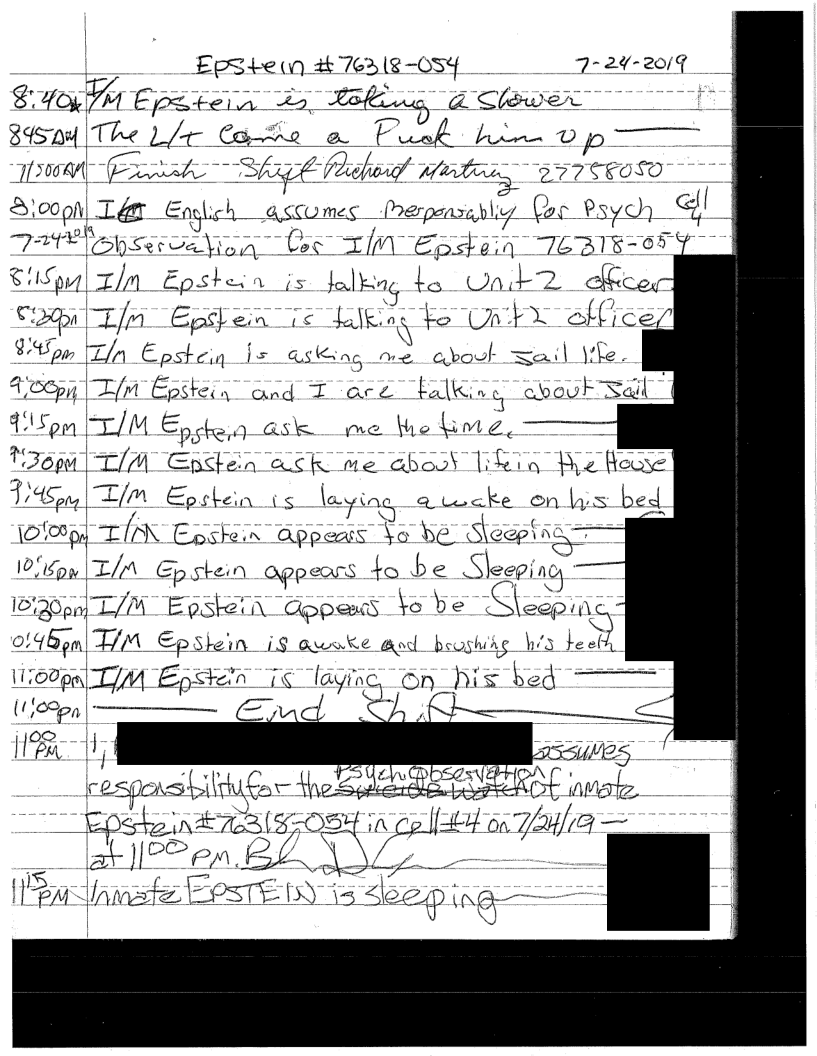 Epstein # 76318-054 7-24-2019
8:40 I/M Epstein is taking a Shower
845AM The L/t Came a Puck him up
11:00AM Finish Shift Richard Martinez 27758050
8:00pm I English assumes responsabliy for Psych Cell 4
7-24-2019 Observation for I/M Epstein 76318-054
8:15pm I/m Epstein is talking to Unit 2 officer
8:30pm I/m Epstein is talking to Unit 2 officer
8:45pm I/m Epstein is asking me about Jail life.
9:00pm I/m Epstein and I are talking about Jail
9:15pm I/M Epstein ask me the time.
9:30pm I/M Epstein ask me about life in the House
9:45pm I/m Epstein is laying awake on his bed
10:00pm I/M Epstein appears to be Sleeping.
10:15pm I/M Epstein appears to be Sleeping
10:30pm I/M Epstein appears to be Sleeping
0:45pm I/M Epstein is awake and brushing his teeth
11:00pm I/M Epstein is laying on his bed
11:00pm End Shift
11:00 PM I, assumes
responsibility for the Psych Observation suicide watch of inmate
Epstein #76318-054 in cell #4 on 7/24/19
at 11:00 PM.
11:15 PM Inmate EPSTEIN is sleeping